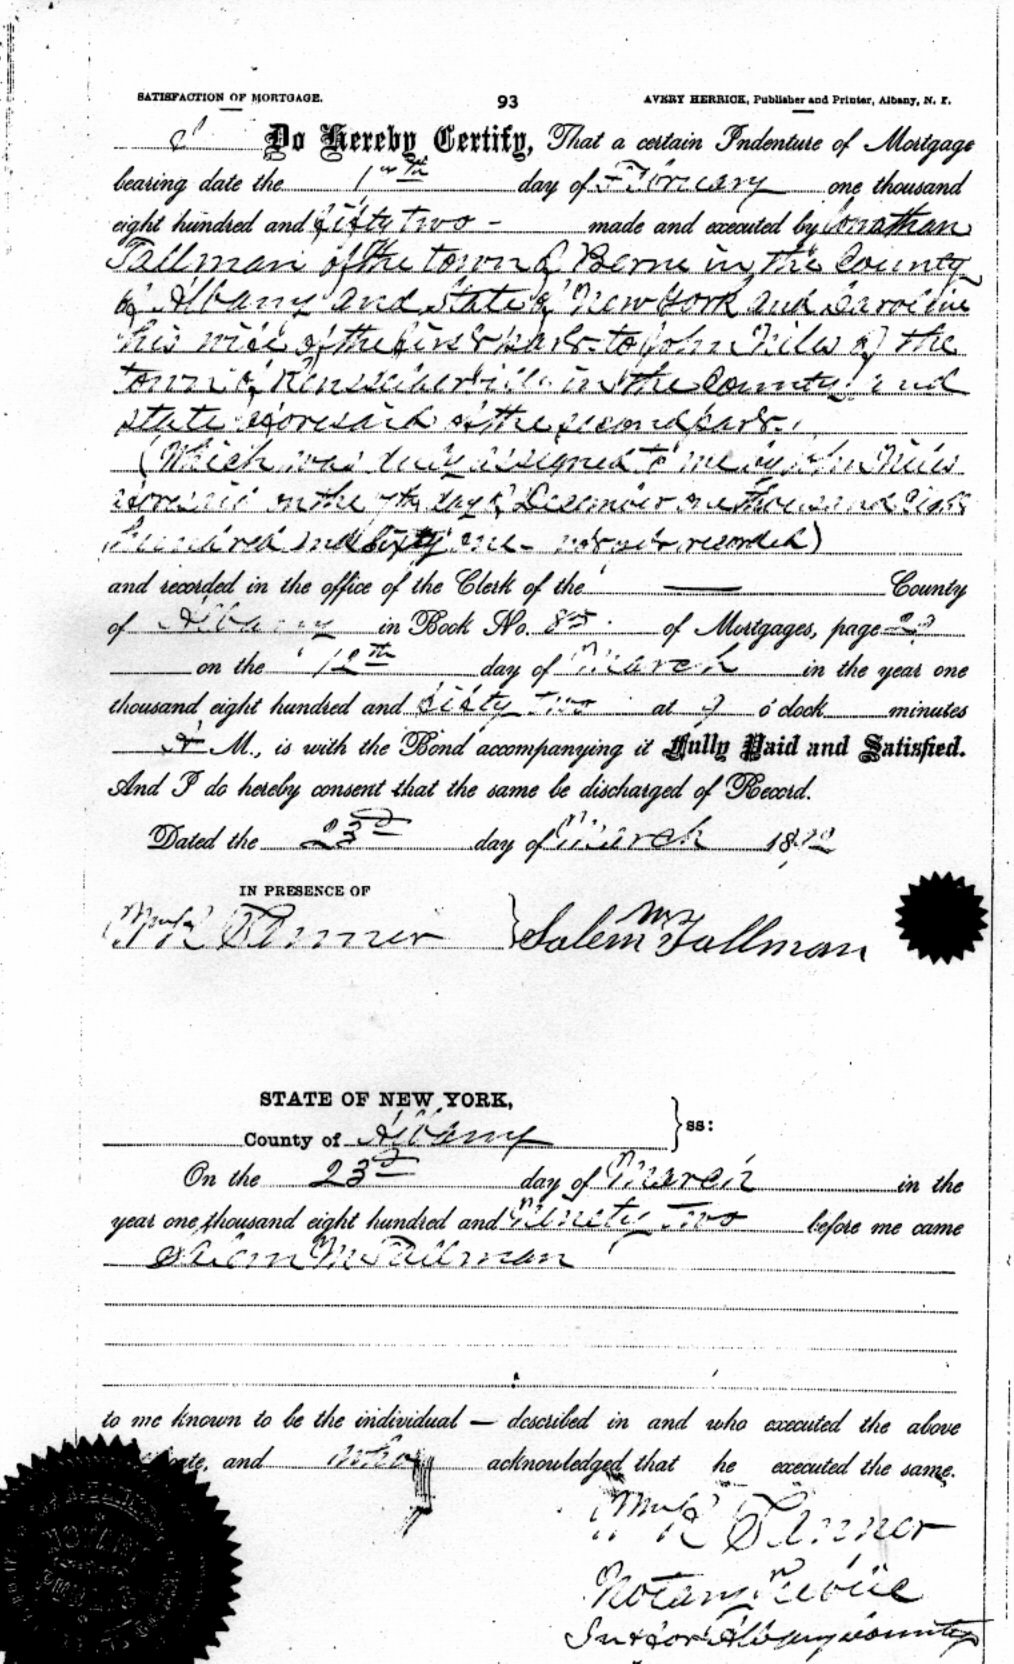 SATISFACTION OF MORTGAGE. 93 AVERY HERRICK, Publisher and Printer, Albany, N. Y.
I Do Hereby Certify, That a certain Indenture of Mortgage
bearing date the day of February one thousand
eight hundred and fifty two - made and executed by Jonathan
Tallman of the town of Berne in the County
of Albany and State of New York and Caroline
his wife of the first part to John Niles of the
town of Rensselaerville in the County and
state aforesaid of the second part.
(Which was duly assigned to me by John Niles
aforesaid on the 7th day of December one thousand eight
hundred and sixty one - not yet recorded)
and recorded in the office of the Clerk of the — County
of Albany in Book No. 85 of Mortgages, page
on the 12th day of March in the year one
thousand eight hundred and fifty two at 9 o'clock minutes
A M., is with the Bond accompanying it Fully Paid and Satisfied.
And I do hereby consent that the same be discharged of Record.
Dated the 23d day of March 1892
IN PRESENCE OF
Tanner } Salem Tallman
STATE OF NEW YORK,
County of Albany } ss:
On the 23d day of March in the
year one thousand eight hundred and Ninety Two before me came
Salem M Tallman
to me known to be the individual — described in and who executed the above
and who acknowledged that he executed the same.
R Tanner
Notary Public
In & for Albany County